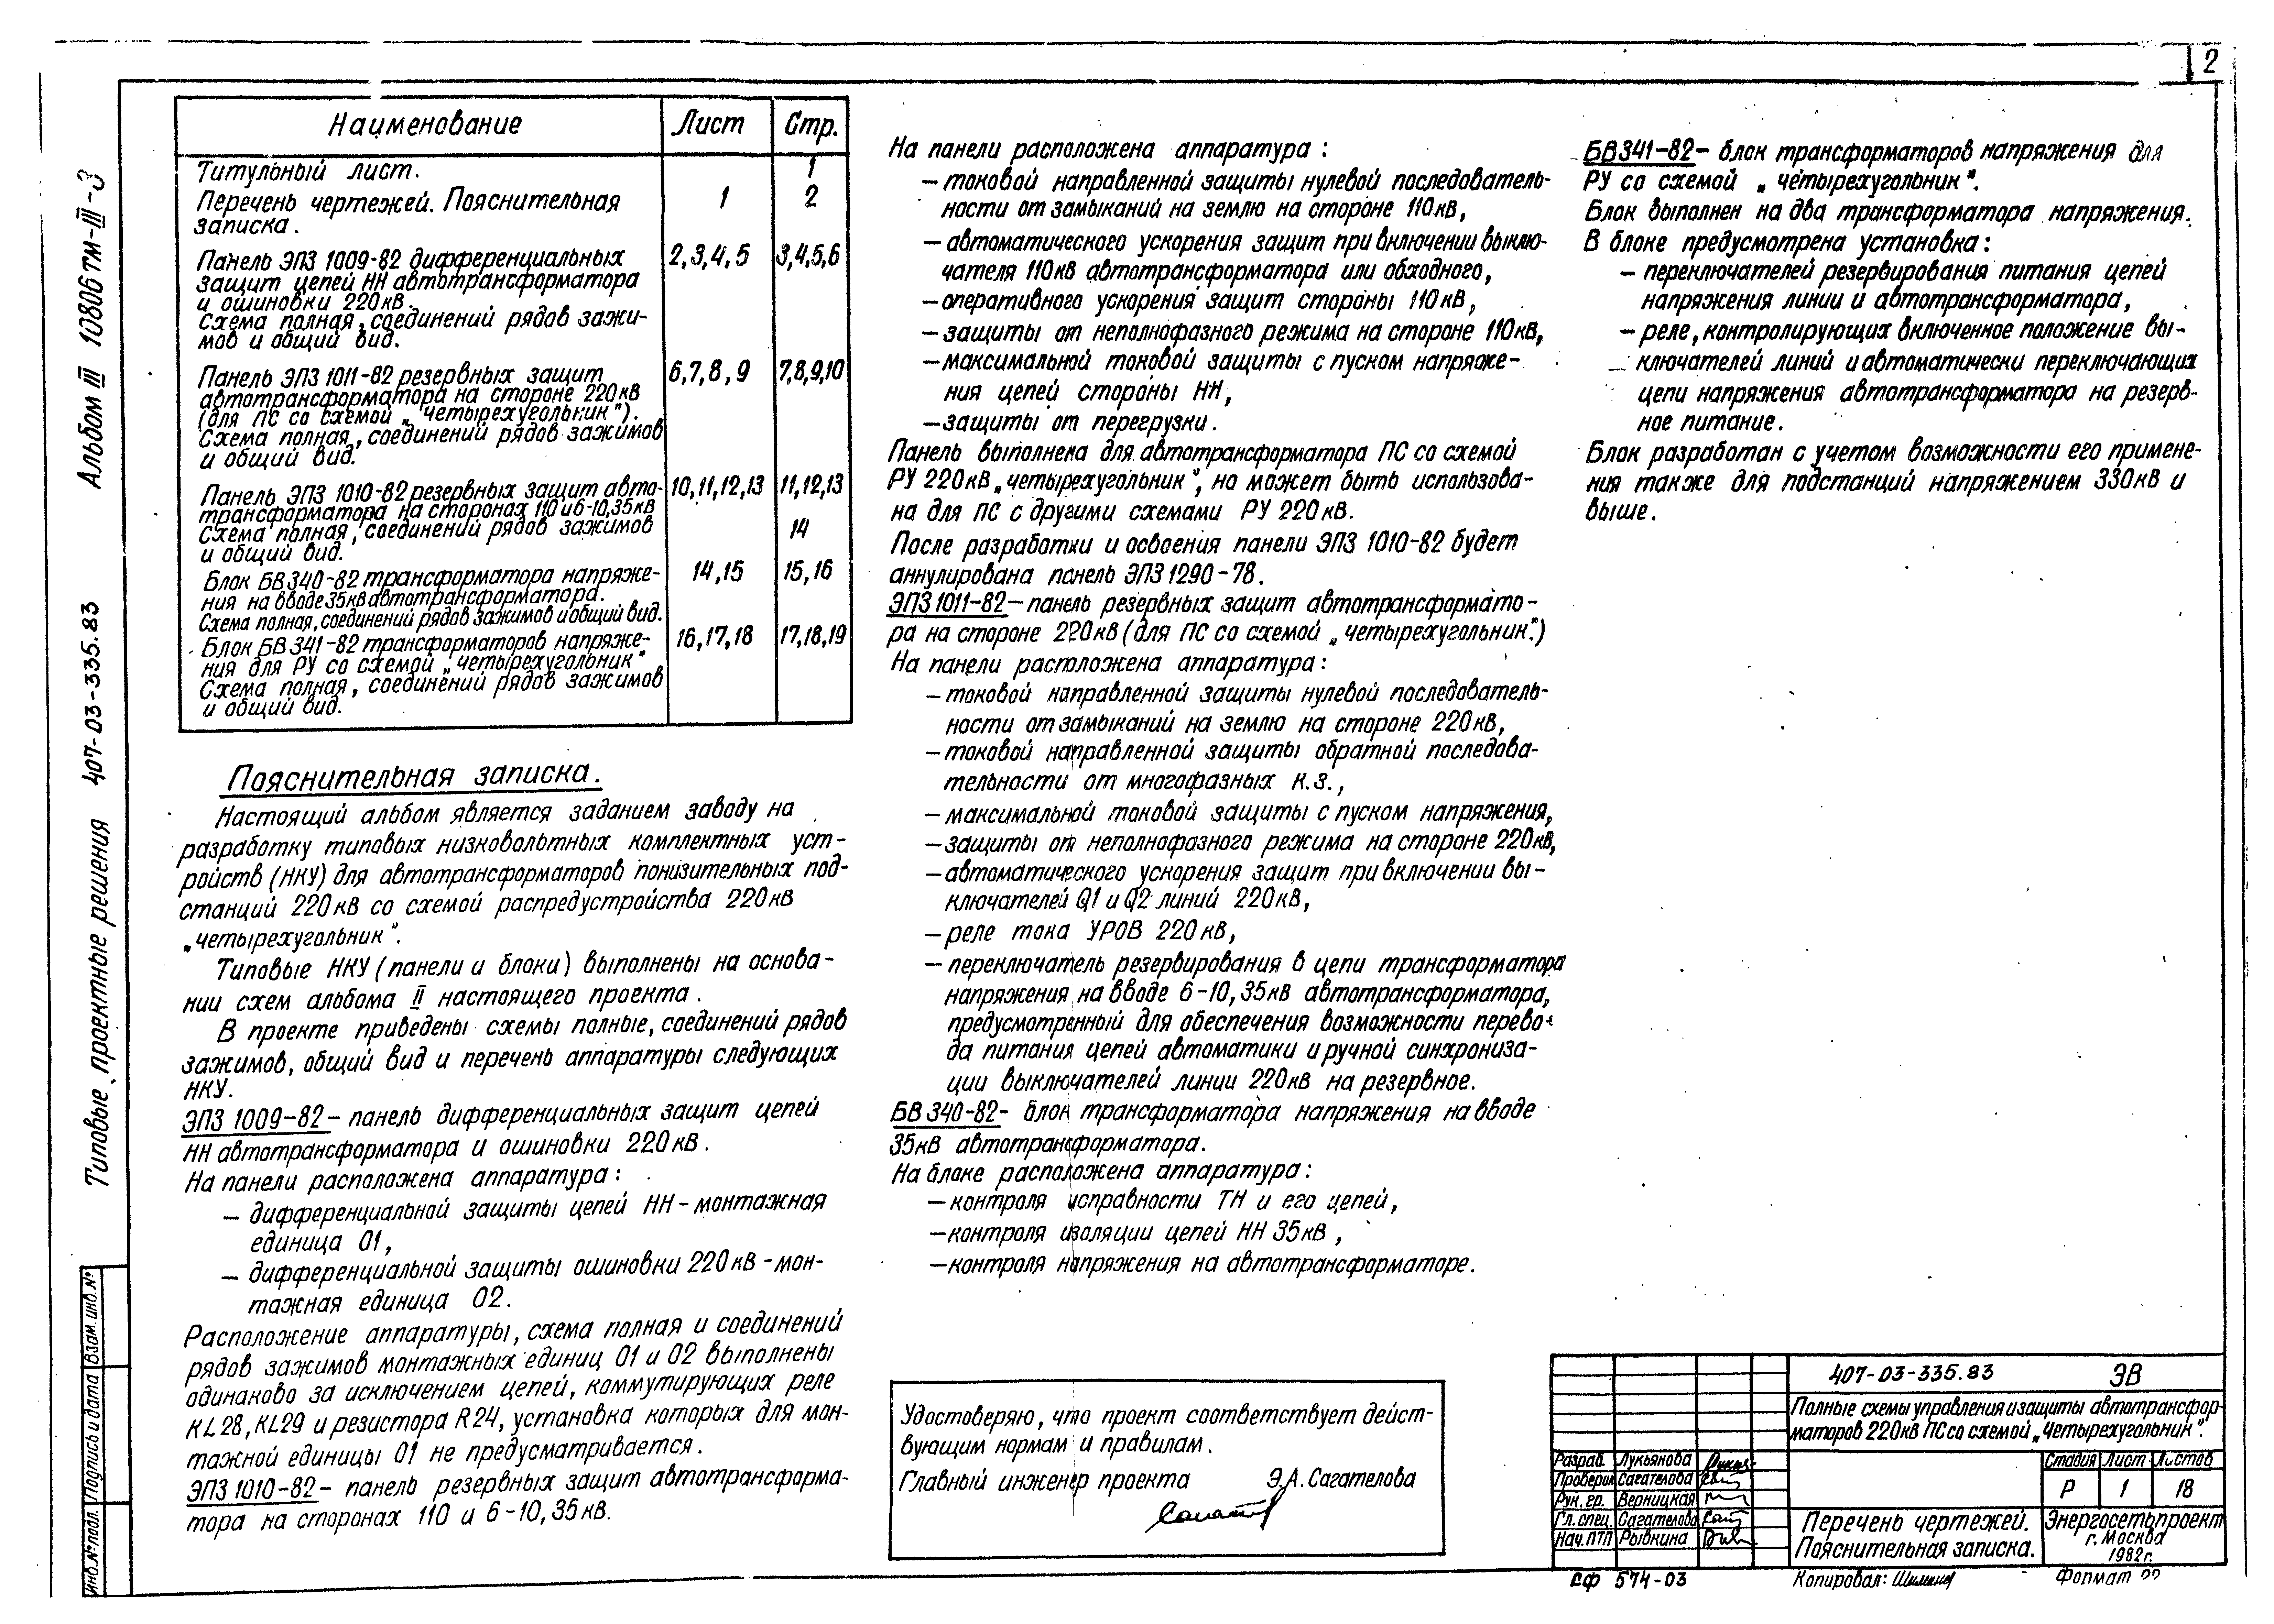 2
Альбом III 10806тм-III-3
407-03-335.83
Типовые проектные решения
Взам. инв.№
Подпись и дата
Инв.№ подл.
Наименование Лист Стр.
Титульный лист. 1
Перечень чертежей. Пояснительная 1 2
записка.
Панель ЭПЗ 1009-82 дифференциальных 2,3,4,5 3,4,5,6
защит цепей НН автотрансформатора
и ошиновки 220кВ.
Схема полная, соединений рядов зажи-
мов и общий вид.
Панель ЭПЗ 1011-82 резервных защит 6,7,8,9 7,8,9,10
автотрансформатора на стороне 220кВ
(для ПС со схемой „четырехугольник").
Схема полная, соединений рядов зажимов
и общий вид.
Панель ЭПЗ 1010-82 резервных защит авто- 10,11,12,13 11,12,13
трансформатора на сторонах 110 и 6-10,35кВ
Схема полная, соединений рядов зажимов 14
и общий вид.
Блок БВ 340-82 трансформатора напряже- 14,15 15,16
ния на вводе 35кВ автотрансформатора.
Схема полная, соединений рядов зажимов и общий вид.
Блок БВ 341-82 трансформаторов напряже- 16,17,18 17,18,19
ния для РУ со схемой „четырехугольник".
Схема полная, соединений рядов зажимов
и общий вид.
Пояснительная записка.
Настоящий альбом является заданием заводу на
разработку типовых низковольтных комплектных уст-
ройств (НКУ) для автотрансформаторов понизительных под-
станций 220кВ со схемой распредустройства 220кВ
„четырехугольник".
Типовые НКУ (панели и блоки) выполнены на основа-
нии схем альбома II настоящего проекта.
В проекте приведены схемы полные, соединений рядов
зажимов, общий вид и перечень аппаратуры следующих
НКУ.
ЭПЗ 1009-82 - панель дифференциальных защит цепей
НН автотрансформатора и ошиновки 220кВ.
На панели расположена аппаратура:
- дифференциальной защиты цепей НН - монтажная
единица 01,
- дифференциальной защиты ошиновки 220кВ - мон-
тажная единица 02.
Расположение аппаратуры, схема полная и соединений
рядов зажимов монтажных единиц 01 и 02 выполнены
одинаково за исключением цепей, коммутирующих реле
KL28, KL29 и резистора R24, установка которых для мон-
тажной единицы 01 не предусматривается.
ЭПЗ 1010-82 - панель резервных защит автотрансформа-
тора на сторонах 110 и 6-10,35кВ.
На панели расположена аппаратура:
- токовой направленной защиты нулевой последователь-
ности от замыканий на землю на стороне 110кВ,
- автоматического ускорения защит при включении выклю-
чателя 110кВ автотрансформатора или обходного,
- оперативного ускорения защит стороны 110кВ,
- защиты от неполнофазного режима на стороне 110кВ,
- максимальной токовой защиты с пуском напряже-
ния цепей стороны НН,
- защиты от перегрузки.
Панель выполнена для автотрансформатора ПС со схемой
РУ 220кВ „четырехугольник", но может быть использова-
на для ПС с другими схемами РУ 220кВ.
После разработки и освоения панели ЭПЗ 1010-82 будет
аннулирована панель ЭПЗ 1290-78.
ЭПЗ 1011-82 - панель резервных защит автотрансформато-
ра на стороне 220кВ (для ПС со схемой „четырехугольник".)
На панели расположена аппаратура:
- токовой направленной защиты нулевой последователь-
ности от замыканий на землю на стороне 220кВ,
- токовой направленной защиты обратной последова-
тельности от многофазных к.з.,
- максимальной токовой защиты с пуском напряжения,
- защиты от неполнофазного режима на стороне 220кВ,
- автоматического ускорения защит при включении вы-
ключателей Q1 и Q2 линий 220кВ,
- реле тока УРОВ 220кВ,
- переключатель резервирования в цепи трансформатора
напряжения на вводе 6-10,35кВ автотрансформатора,
предусмотренный для обеспечения возможности перево-
да питания цепей автоматики и ручной синхрониза-
ции выключателей линии 220кВ на резервное.
БВ 340-82- блок трансформатора напряжения на вводе
35кВ автотрансформатора.
На блоке расположена аппаратура:
- контроля исправности ТН и его цепей,
- контроля изоляции цепей НН 35кВ,
- контроля напряжения на автотрансформаторе.
Удостоверяю, что проект соответствует дейст-
вующим нормам и правилам.
Главный инженер проекта Э.А. Сагателова
БВ341-82- блок трансформаторов напряжения для
РУ со схемой „четырехугольник".
Блок выполнен на два трансформатора напряжения.
В блоке предусмотрена установка:
- переключателей резервирования питания цепей
напряжения линии и автотрансформатора,
- реле, контролирующих включенное положение вы-
ключателей линий и автоматически переключающих
цепи напряжения автотрансформатора на резерв-
ное питание.
Блок разработан с учетом возможности его примене-
ния также для подстанций напряжением 330кВ и
выше.
407-03-335.83 ЭВ
Полные схемы управления и защиты автотрансфор-
маторов 220кВ ПС со схемой „Четырехугольник".
Разраб. Лукьянова
Проверил Сагателова
Рук. гр. Верницкая
Гл. спец. Сагателова
Нач. ПТП Рывкина
Стадия Лист Листов
Р 1 18
Перечень чертежей.
Пояснительная записка.
Энергосетьпроект
г. Москва
1982г.
СФ 574-03 Копировал: Формат 22